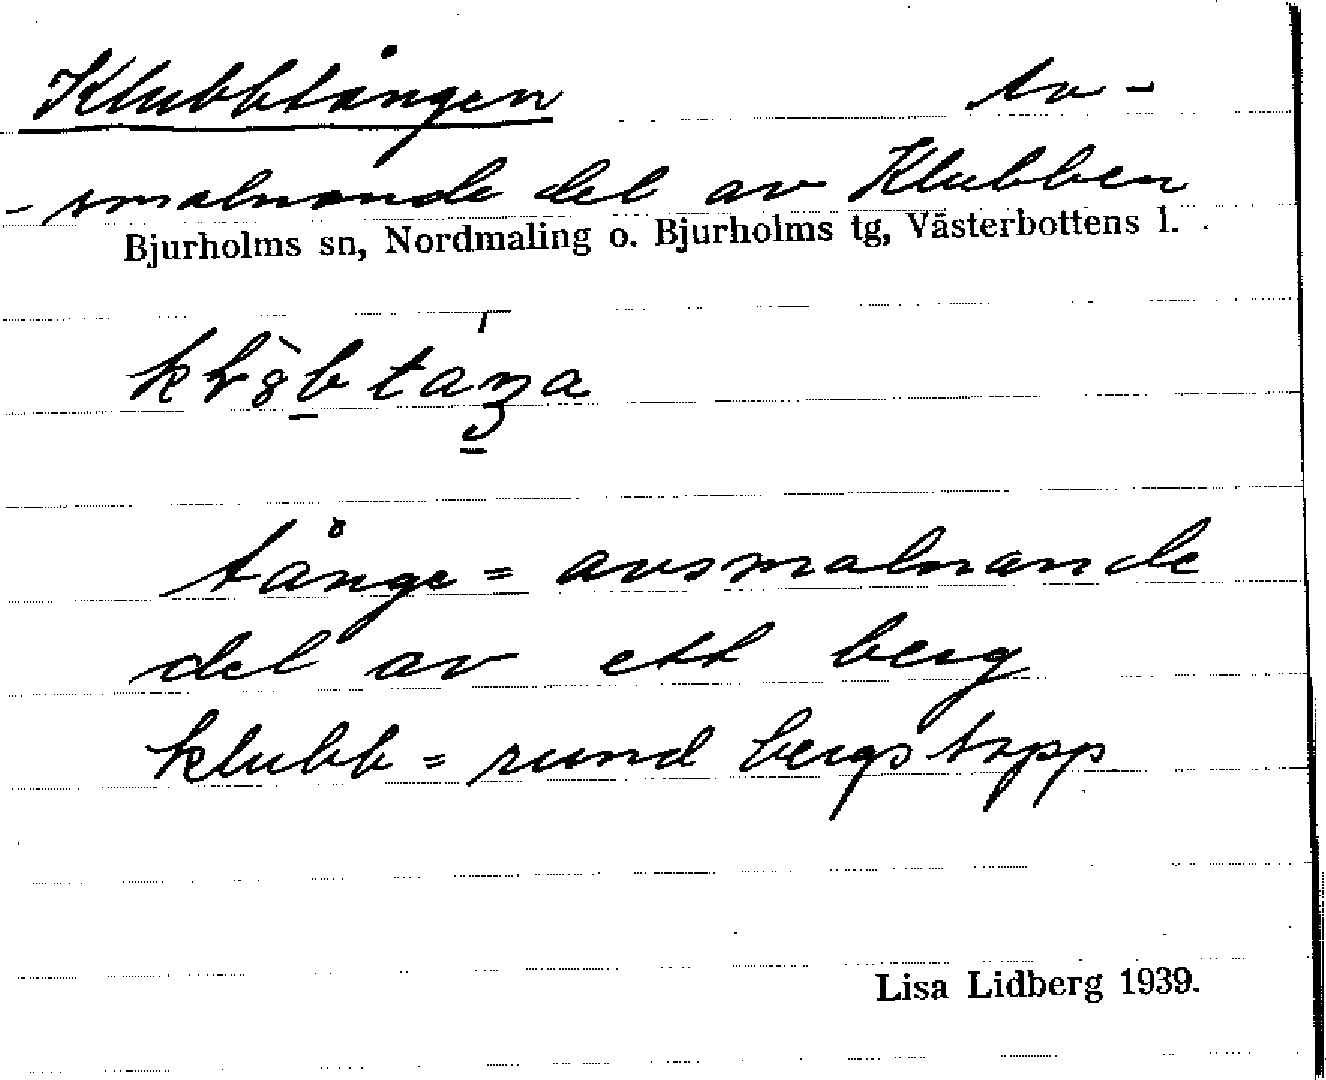 Klubbtången to-
- smalnande del av Klubben
Bjurholms sn, Nordmaling o. Bjurholms tg, Västerbottens l.
tånge = avsmalnande
del av ett berg
klubb = rund bergstopp
Lisa Lidberg 1939.